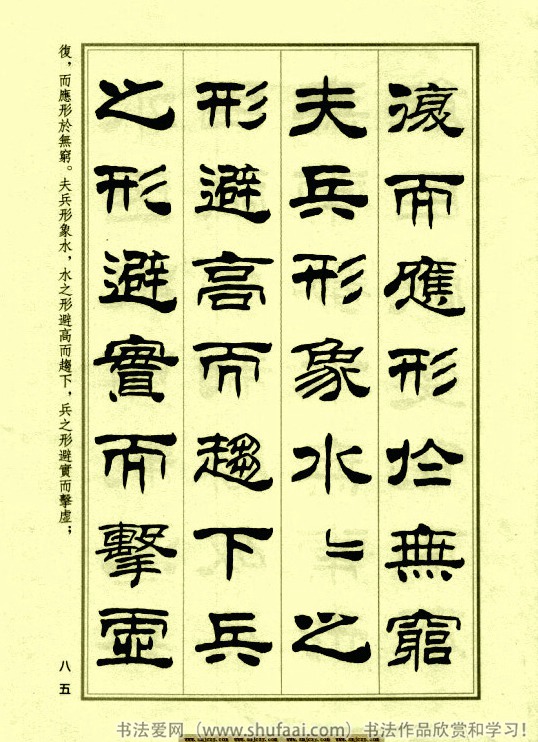 復而應形於無窮
夫兵形象水〻之
形避高而趨下兵
之形避實而擊虛
復，而應形於無窮。夫兵形象水，水之形避高而趨下，兵之形避實而擊虛；
八五
书法爱网（www.shufaai.com）书法作品欣赏和学习！